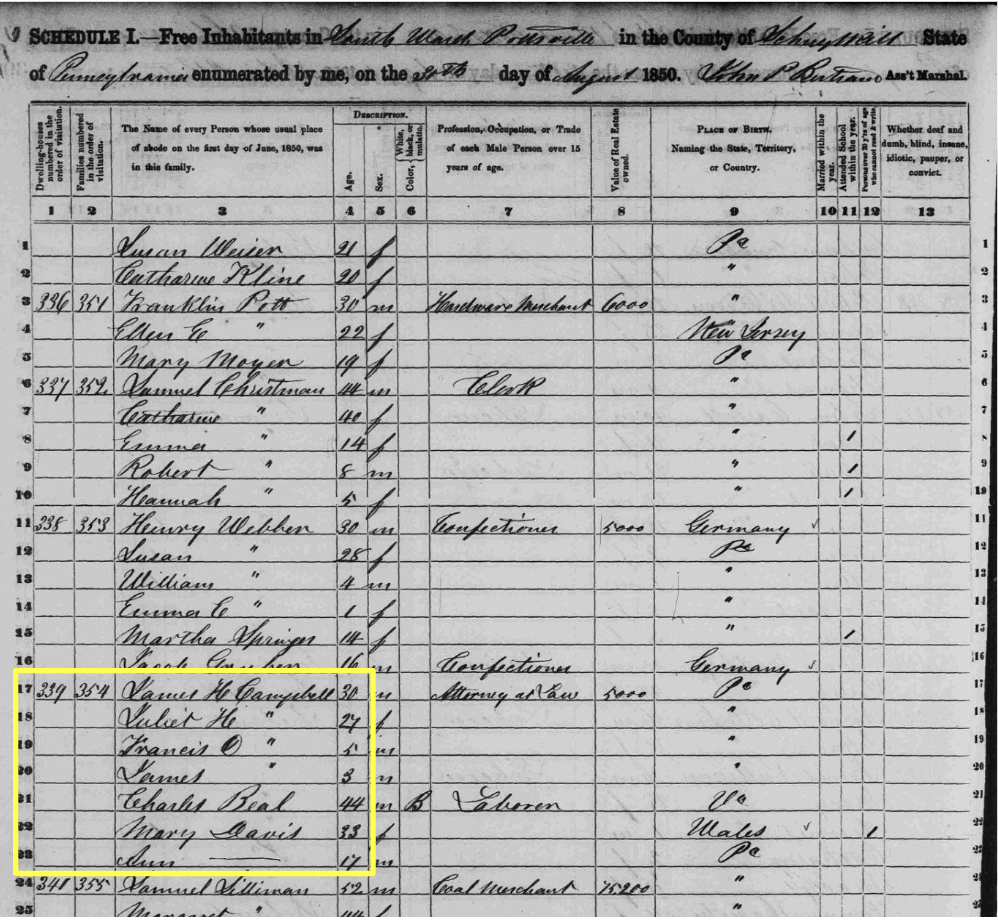 SCHEDULE I.—Free Inhabitants in South Ward Pottsville in the County of Schuylkill State
of Pennsylvania enumerated by me, on the 20th day of August 1850. John P Bertram Ass't Marshal.
Dwelling-houses numbered in the order of visitation.
Families numbered in the order of visitation.
The Name of every Person whose usual place of abode on the first day of June, 1850, was in this family.
DESCRIPTION.
Age.
Sex.
Color, White, black, or mulatto.
Profession, Occupation, or Trade of each Male Person over 15 years of age.
Value of Real Estate owned.
PLACE OF BIRTH. Naming the State, Territory, or Country.
Married within the year.
Attended School within the year.
Persons over 20 y'rs of age who cannot read & write.
Whether deaf and dumb, blind, insane, idiotic, pauper, or convict.
1 2 3 4 5 6 7 8 9 10 11 12 13
1 Susan Weiser 21 f Pa 1
2 Catharine Kline 20 f " 2
3 336 351 Franklin Pott 30 m Hardware Merchant 6000 " 3
4 Ellen E " 22 f New Jersey 4
5 Mary Moyer 19 f Pa 5
6 337 352 Samuel Christman 44 m Clerk " 6
7 Catharine " 40 f " 7
8 Emma " 14 f " 1 8
9 Robert " 8 m " 1 9
10 Hannah " 5 f " 1 10
11 338 353 Henry Webber 30 m Confectioner 5000 Germany ✓ 11
12 Susan " 28 f Pa 12
13 William " 4 m " 13
14 Emma C " 1 f " 14
15 Martha Springer 14 f " 1 15
16 Jacob 16 m Confectioner Germany ✓ 16
17 339 354 James H Campbell 30 m Attorney at Law 5000 Pa 17
18 Juliet H " 27 f " 18
19 Francis " 5 m " 19
20 James " 3 m " 20
21 Charles Beal 44 m B Laborer Va 21
22 Mary Davis 33 f Wales ✓ 1 22
23 Ann — 17 m Pa 23
24 341 355 Samuel Silliman 52 m Coal Merchant 15200 " 24
25 Margaret " 44 f " 25